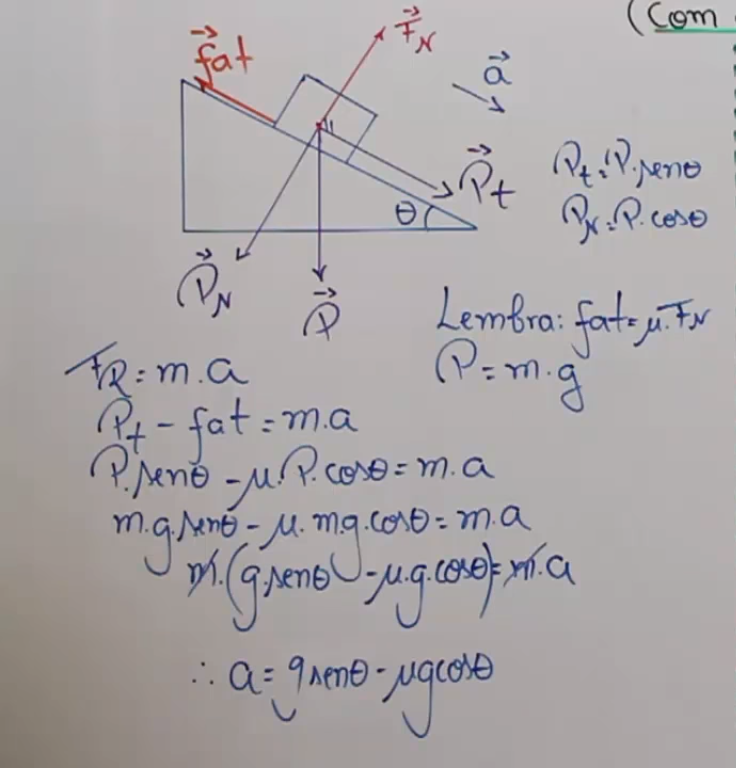 (Com
fat
F_N
a
P_t
θ
P_N
P
P_t = P.senθ
P_N = P.cosθ
Lembra: fat = μ.F_N
P = m.g
F_R = m.a
P_t - fat = m.a
P.senθ - μ.P.cosθ = m.a
m.g.senθ - μ.m.g.cosθ = m.a
m.(g.senθ - μ.g.cosθ) = m.a
∴ a = gsenθ - μgcosθ